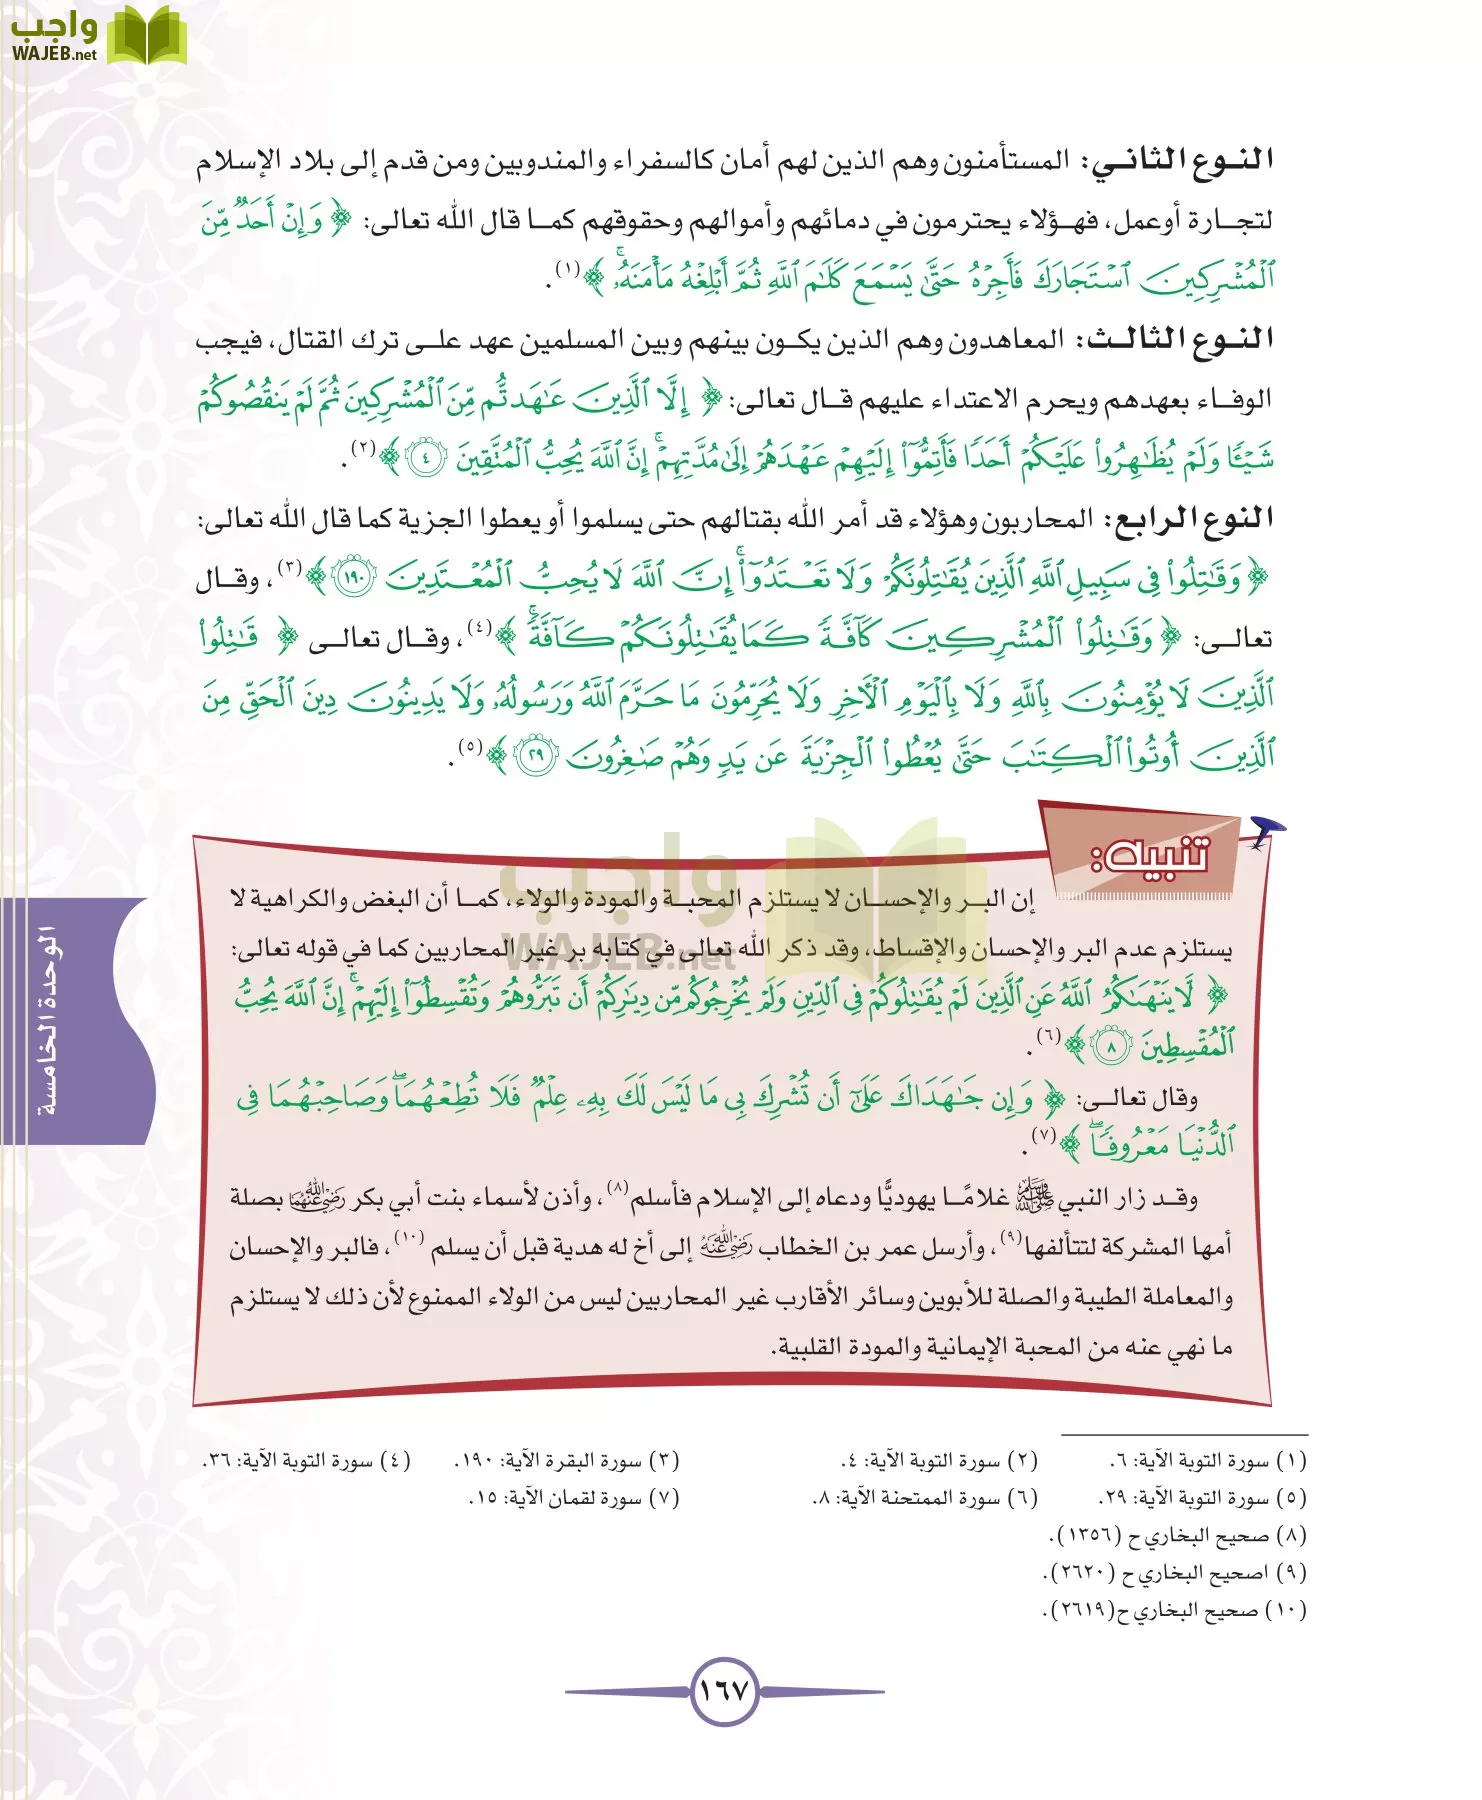 واجب
WAJEB.net
النوع الثاني: المستأمنون وهم الذين لهم أمان كالسفراء والمندوبين ومن قدم إلى بلاد الإسلام
لتجارة أوعمل، فهؤلاء يحترمون في دمائهم وأموالهم وحقوقهم كما قال الله تعالى: ﴿ وَإِنْ أَحَدٌ مِّنَ
ٱلْمُشْرِكِينَ ٱسْتَجَارَكَ فَأَجِرْهُ حَتَّىٰ يَسْمَعَ كَلَٰمَ ٱللَّهِ ثُمَّ أَبْلِغْهُ مَأْمَنَهُۥ ﴾(١).
النوع الثالث: المعاهدون وهم الذين يكون بينهم وبين المسلمين عهد على ترك القتال، فيجب
الوفاء بعهدهم ويحرم الاعتداء عليهم قال تعالى: ﴿ إِلَّا ٱلَّذِينَ عَٰهَدتُّم مِّنَ ٱلْمُشْرِكِينَ ثُمَّ لَمْ يَنقُصُوكُمْ
شَيْـًٔا وَلَمْ يُظَٰهِرُوا۟ عَلَيْكُمْ أَحَدًا فَأَتِمُّوٓا۟ إِلَيْهِمْ عَهْدَهُمْ إِلَىٰ مُدَّتِهِمْ ۚ إِنَّ ٱللَّهَ يُحِبُّ ٱلْمُتَّقِينَ ٤ ﴾(٢).
النوع الرابع: المحاربون وهؤلاء قد أمر الله بقتالهم حتى يسلموا أو يعطوا الجزية كما قال الله تعالى:
﴿ وَقَٰتِلُوا۟ فِى سَبِيلِ ٱللَّهِ ٱلَّذِينَ يُقَٰتِلُونَكُمْ وَلَا تَعْتَدُوٓا۟ ۚ إِنَّ ٱللَّهَ لَا يُحِبُّ ٱلْمُعْتَدِينَ ١٩٠ ﴾(٣)، وقال
تعالى: ﴿ وَقَٰتِلُوا۟ ٱلْمُشْرِكِينَ كَآفَّةً كَمَا يُقَٰتِلُونَكُمْ كَآفَّةً ۚ ﴾(٤)، وقال تعالى ﴿ قَٰتِلُوا۟
ٱلَّذِينَ لَا يُؤْمِنُونَ بِٱللَّهِ وَلَا بِٱلْيَوْمِ ٱلْءَاخِرِ وَلَا يُحَرِّمُونَ مَا حَرَّمَ ٱللَّهُ وَرَسُولُهُۥ وَلَا يَدِينُونَ دِينَ ٱلْحَقِّ مِنَ
ٱلَّذِينَ أُوتُوا۟ ٱلْكِتَٰبَ حَتَّىٰ يُعْطُوا۟ ٱلْجِزْيَةَ عَن يَدٍ وَهُمْ صَٰغِرُونَ ٢٩ ﴾(٥).
تنبيه:
إن البر والإحسان لا يستلزم المحبة والمودة والولاء، كما أن البغض والكراهية لا
يستلزم عدم البر والإحسان والإقساط، وقد ذكر الله تعالى في كتابه بر غير المحاربين كما في قوله تعالى:
﴿ لَّا يَنْهَىٰكُمُ ٱللَّهُ عَنِ ٱلَّذِينَ لَمْ يُقَٰتِلُوكُمْ فِى ٱلدِّينِ وَلَمْ يُخْرِجُوكُم مِّن دِيَٰرِكُمْ أَن تَبَرُّوهُمْ وَتُقْسِطُوٓا۟ إِلَيْهِمْ ۚ إِنَّ ٱللَّهَ يُحِبُّ
ٱلْمُقْسِطِينَ ٨ ﴾(٦).
وقال تعالى: ﴿ وَإِن جَٰهَدَاكَ عَلَىٰٓ أَن تُشْرِكَ بِى مَا لَيْسَ لَكَ بِهِۦ عِلْمٌ فَلَا تُطِعْهُمَا ۖ وَصَاحِبْهُمَا فِى
ٱلدُّنْيَا مَعْرُوفًا ۖ ﴾(٧).
وقد زار النبي ﷺ غلامًا يهوديًّا ودعاه إلى الإسلام فأسلم(٨)، وأذن لأسماء بنت أبي بكر رضي الله عنهما بصلة
أمها المشركة لتتألفها(٩)، وأرسل عمر بن الخطاب رضي الله عنه إلى أخ له هدية قبل أن يسلم (١٠)، فالبر والإحسان
والمعاملة الطيبة والصلة للأبوين وسائر الأقارب غير المحاربين ليس من الولاء الممنوع لأن ذلك لا يستلزم
ما نهي عنه من المحبة الإيمانية والمودة القلبية.
واجب
WAJEB.net
الوحدة الخامسة
(١) سورة التوبة الآية: ٦. (٢) سورة التوبة الآية: ٤. (٣) سورة البقرة الآية: ١٩٠. (٤) سورة التوبة الآية: ٣٦.
(٥) سورة التوبة الآية: ٢٩. (٦) سورة الممتحنة الآية: ٨. (٧) سورة لقمان الآية: ١٥.
(٨) صحيح البخاري ح (١٣٥٦).
(٩) اصحيح البخاري ح (٢٦٢٠).
(١٠) صحيح البخاري ح(٢٦١٩).
١٦٧